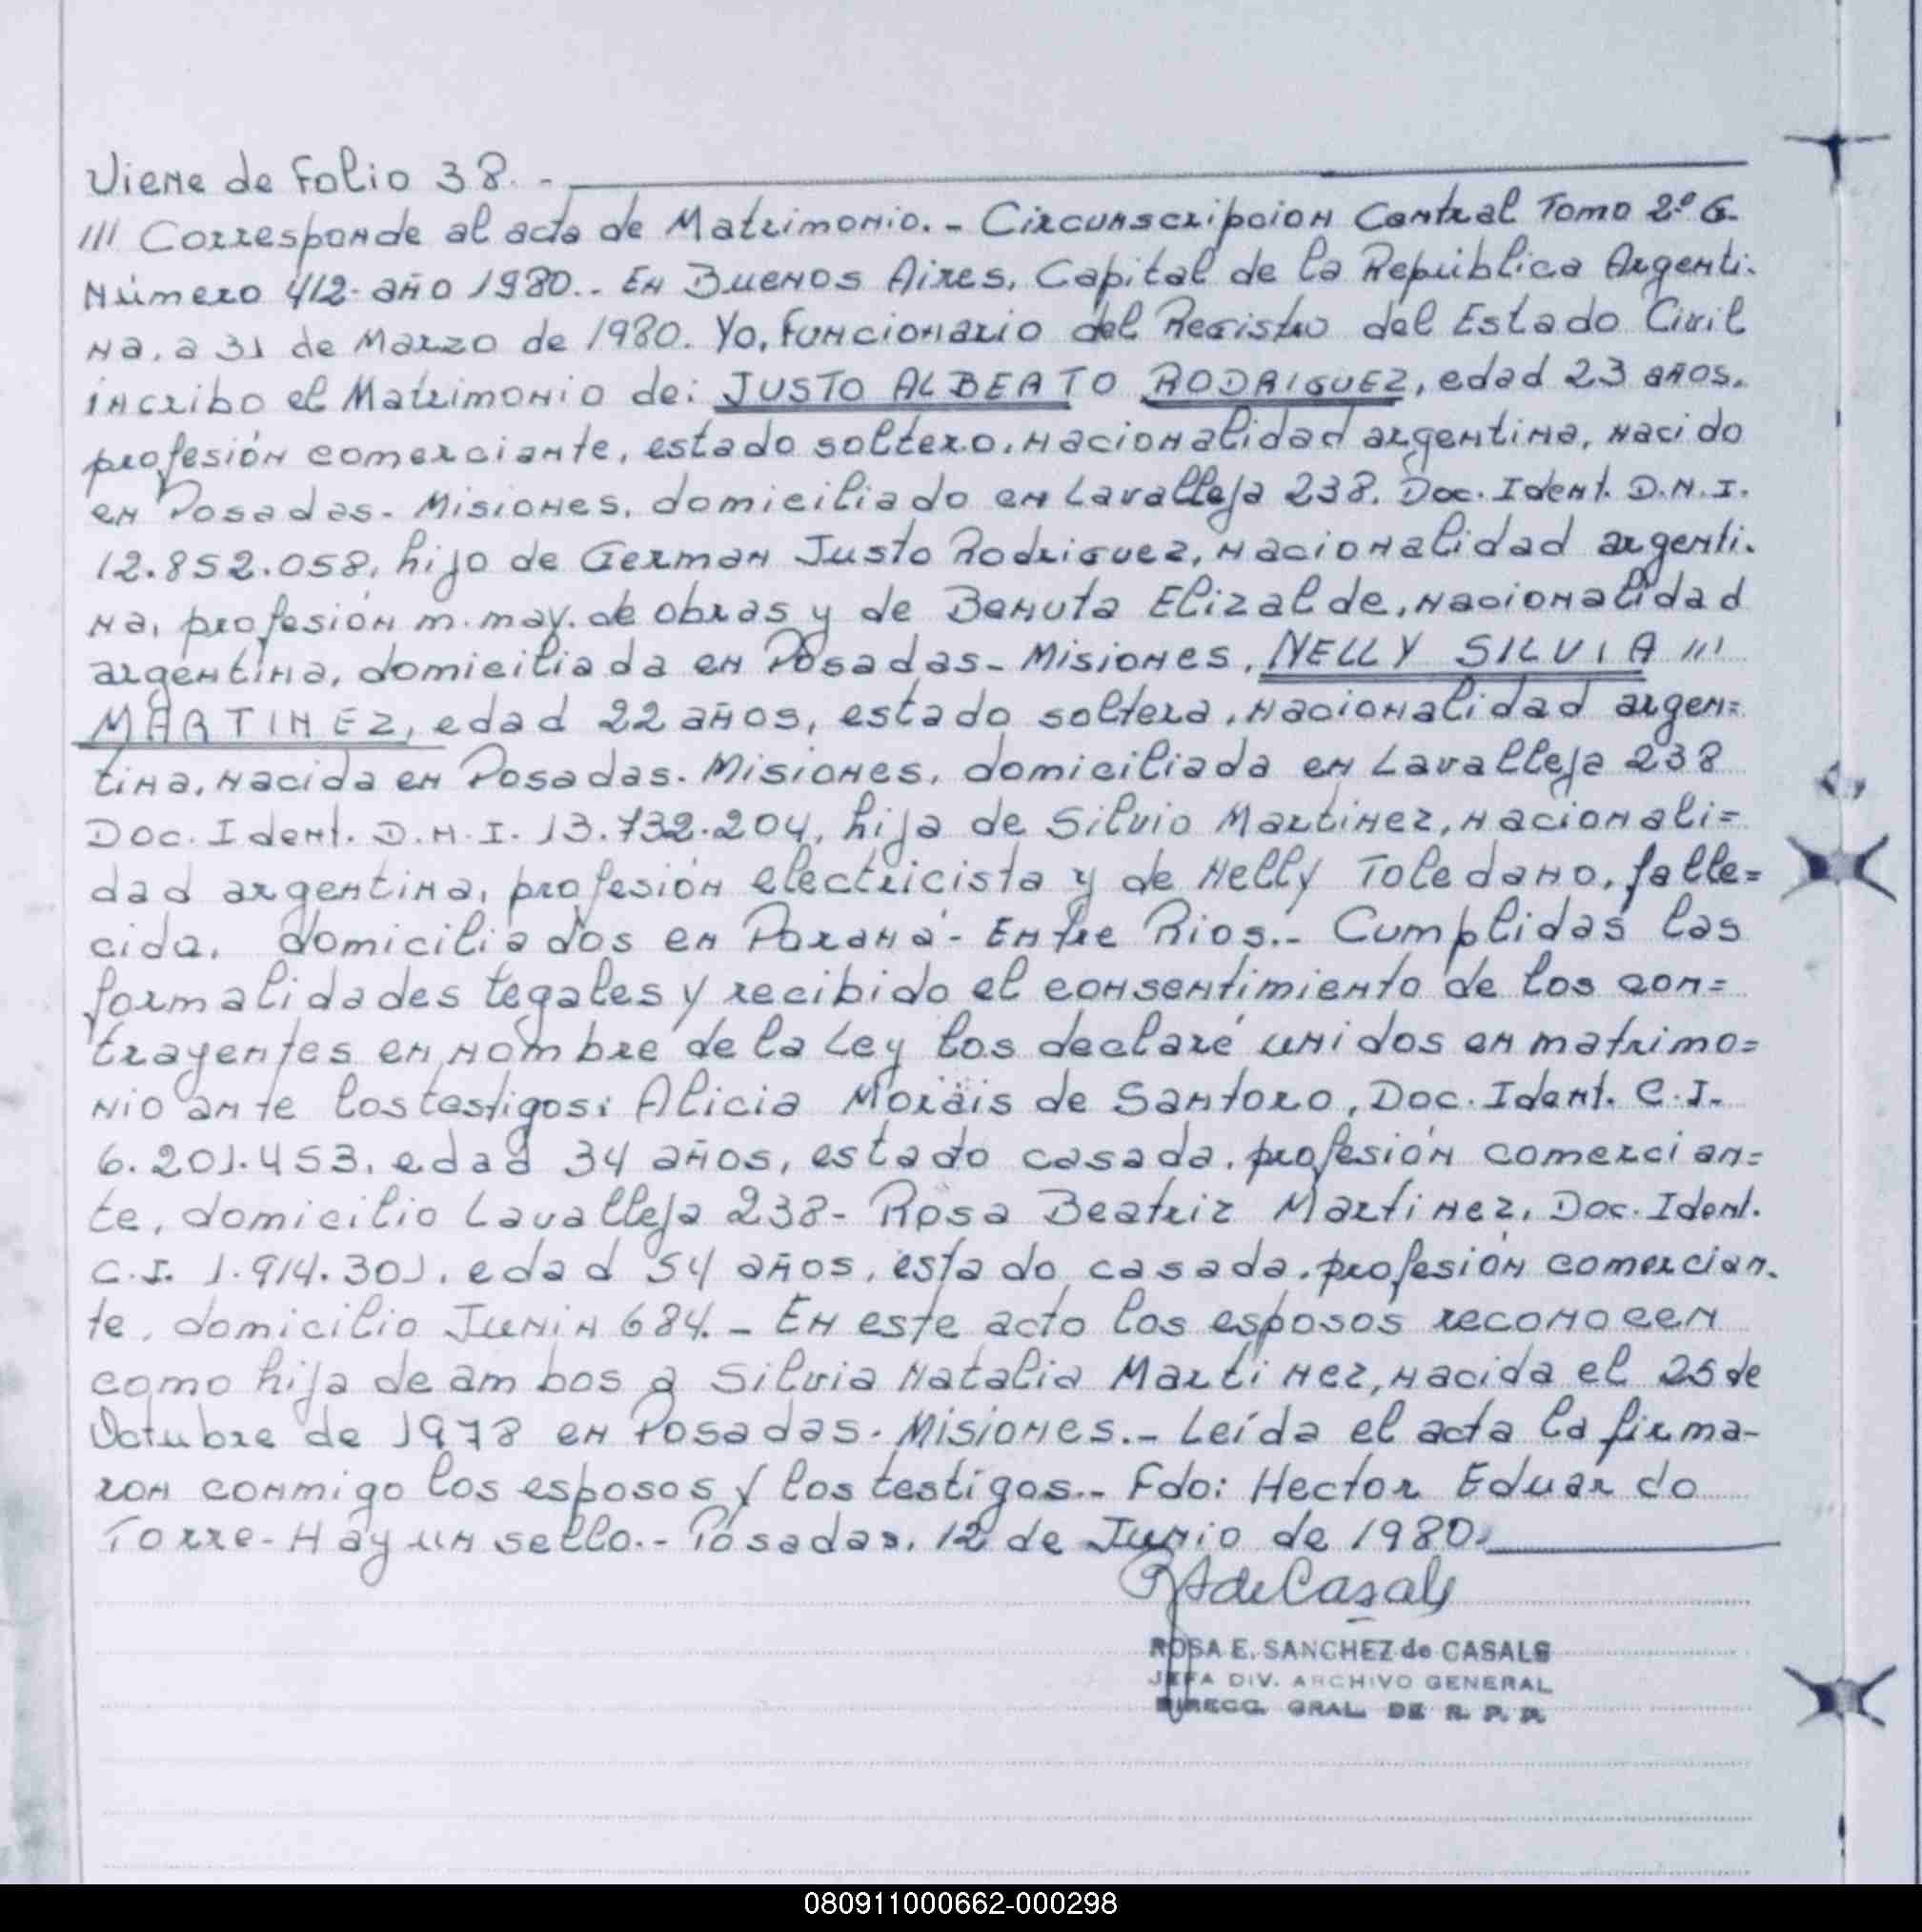 Viene de Folio 38.-
/// Corresponde al acta de Matrimonio.- Circunscripcion Central Tomo 2º G.
Número 412- año 1980.. En Buenos Aires, Capital de la República Argenti-
na, a 31 de Marzo de 1980. Yo, Funcionario del Registro del Estado Civil
incribo el Matrimonio de: JUSTO ALBERTO RODRIGUEZ, edad 23 años.
profesión comerciante, estado soltero, nacionalidad argentina, nacido
en Posadas- Misiones, domiciliado en Lavalleja 238. Doc. Ident. D.N.I.
12.852.058, hijo de German Justo Rodriguez, nacionalidad argenti-
na, profesión m. may. de obras y de Benuta Elizalde, nacionalidad
argentina, domiciliada en Posadas- Misiones, NELLY SILVIA ///
MARTINEZ, edad 22 años, estado soltera, nacionalidad argen=
tina, nacida en Posadas- Misiones, domiciliada en Lavalleja 238
Doc. Ident. D.N.I. 13.732.204, hija de Silvio Martinez, nacionali=
dad argentina, profesión electricista y de Nelly Toledano, falle=
cida, domiciliados en Paraná- Entre Rios.- Cumplidas las
formalidades legales y recibido el consentimiento de los con=
trayentes en nombre de la Ley los declaré unidos en matrimo=
nio ante los testigos: Alicia Morais de Santoro, Doc. Ident. C.I.
6.201.453, edad 34 años, estado casada, profesión comercian=
te, domicilio Lavalleja 238- Rosa Beatriz Martinez, Doc. Ident.
C.I. 1.914.301, edad 54 años, estado casada, profesión comercian-
te, domicilio Junin 684.- En este acto los esposos reconocen
como hija de ambos a Silvia Natalia Martinez, nacida el 25 de
Octubre de 1978 en Posadas- Misiones.- Leída el acta la firma-
ron conmigo los esposos y los testigos.- Fdo: Hector Eduardo
Torre- Hay un sello.- Posadas, 12 de Junio de 1980.
RSdeCasals
ROSA E. SANCHEZ de CASALS
JEFA DIV. ARCHIVO GENERAL
DIRECC. GRAL. DE R. P. P.
080911000662-000298